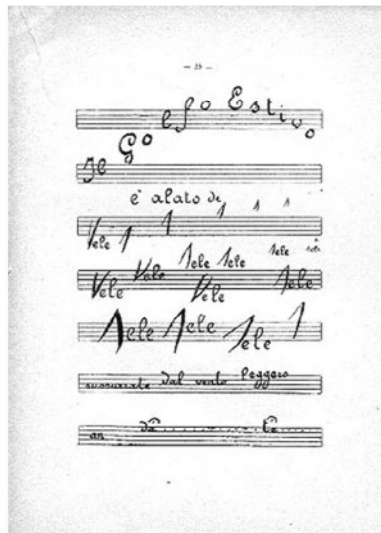 — 15 —
Golfo Estivo
Il
è alato di
Vele 1 1 1 1 1 1
Vele Vele Vele Vele Vele Vele Vele Vele
Vele Vele Vele 1
sussurrate dal vento leggero
an dà ta